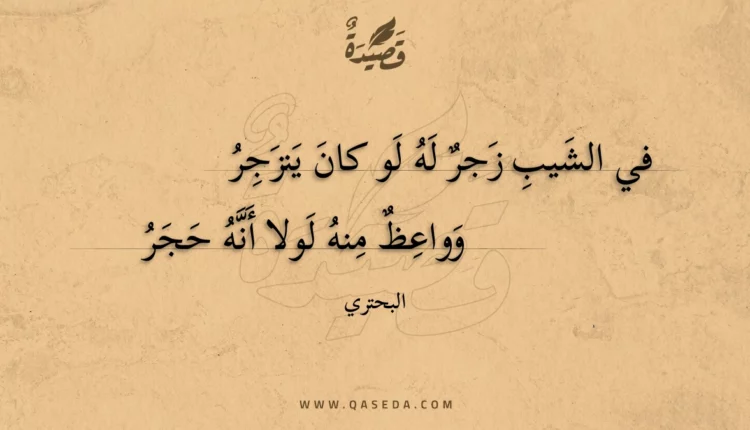 قَصِيْدَةٌ
في الشَيبِ زَجرٌ لَهُ لَو كانَ يَنزَجِرُ
وَواعِظٌ مِنهُ لَولا أَنَّهُ حَجَرُ
البحتري
WWW.QASEDA.COM